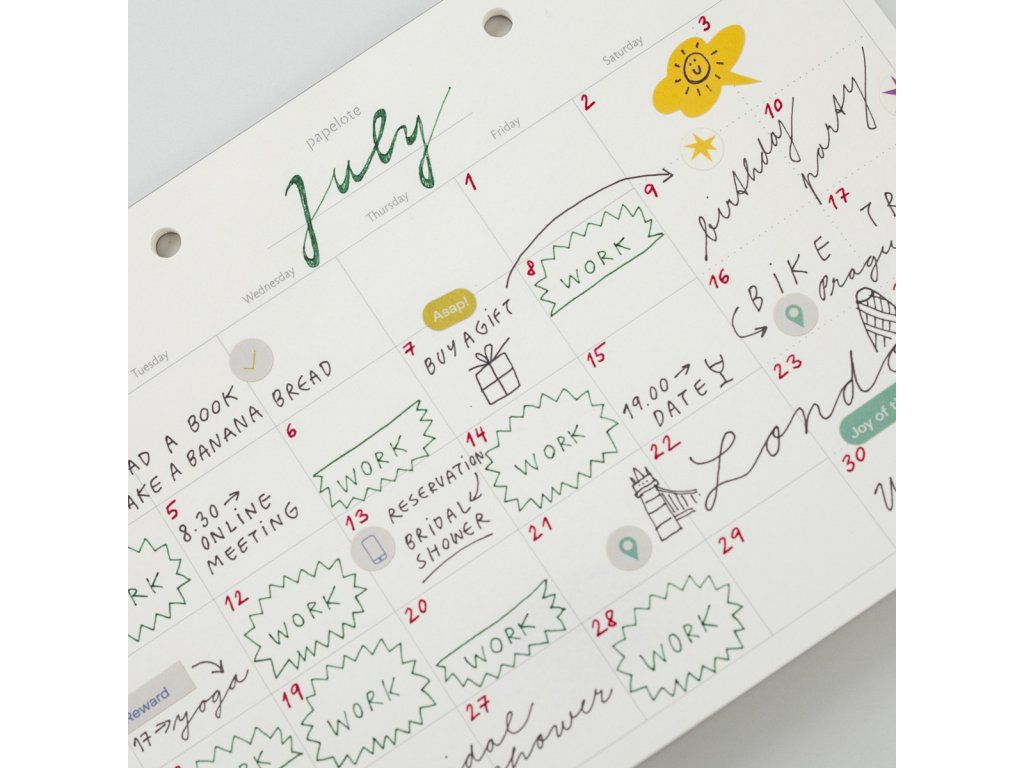 papelote
July
Tuesday
Wednesday
Thursday
Friday
Saturday
1
2
3
AD A BOOK
AKE A BANANA BREAD
6
7
Asap!
BUY A GIFT
8
WORK
9
10
birthday
party
5
8.30 →
ONLINE
MEETING
WORK
13
14
RESERVATION
BRIDAL
SHOWER
WORK
15
19.00 →
DATE
16
17
BIKE TR
Pragu
RK
12
WORK
20
21
22
London
23
Joy of t
Reward
17 => yoga
19
WORK
WORK
27
28
WORK
29
30
WORK
dal
hower